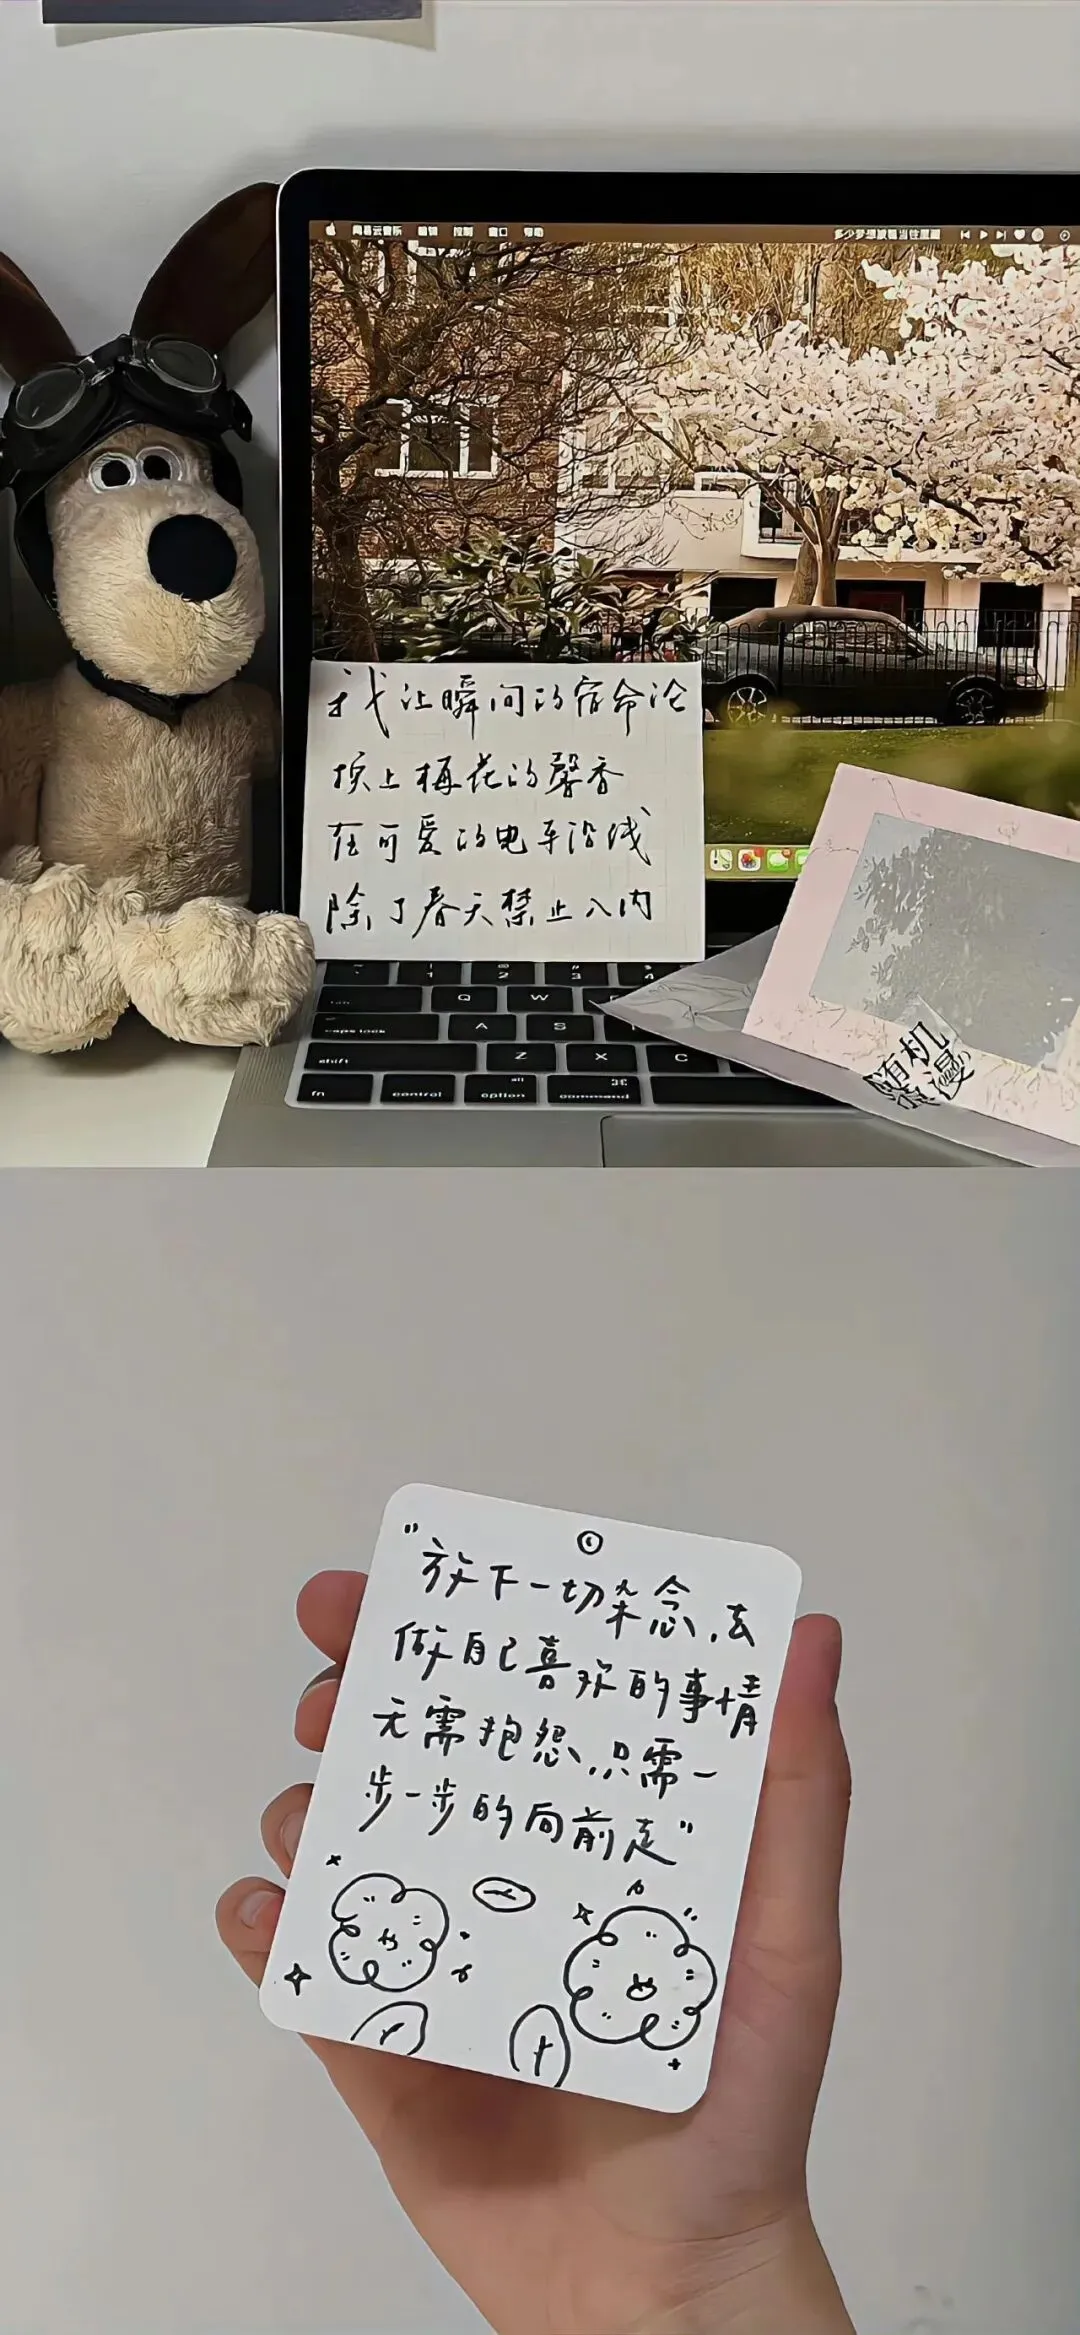 网易云音乐 编辑 控制 窗口 帮助
我让瞬间的宿命论
换上梅花的馨香
在可爱的电车沿线
除了春天禁止入内
随机
浪漫
1 2 3 4
Q W
caps lock A S
shift Z X C
fn control alt option ⌘ command
"放下一切杂念,去
做自己喜欢的事情
无需抱怨,只需一
步一步的向前走"